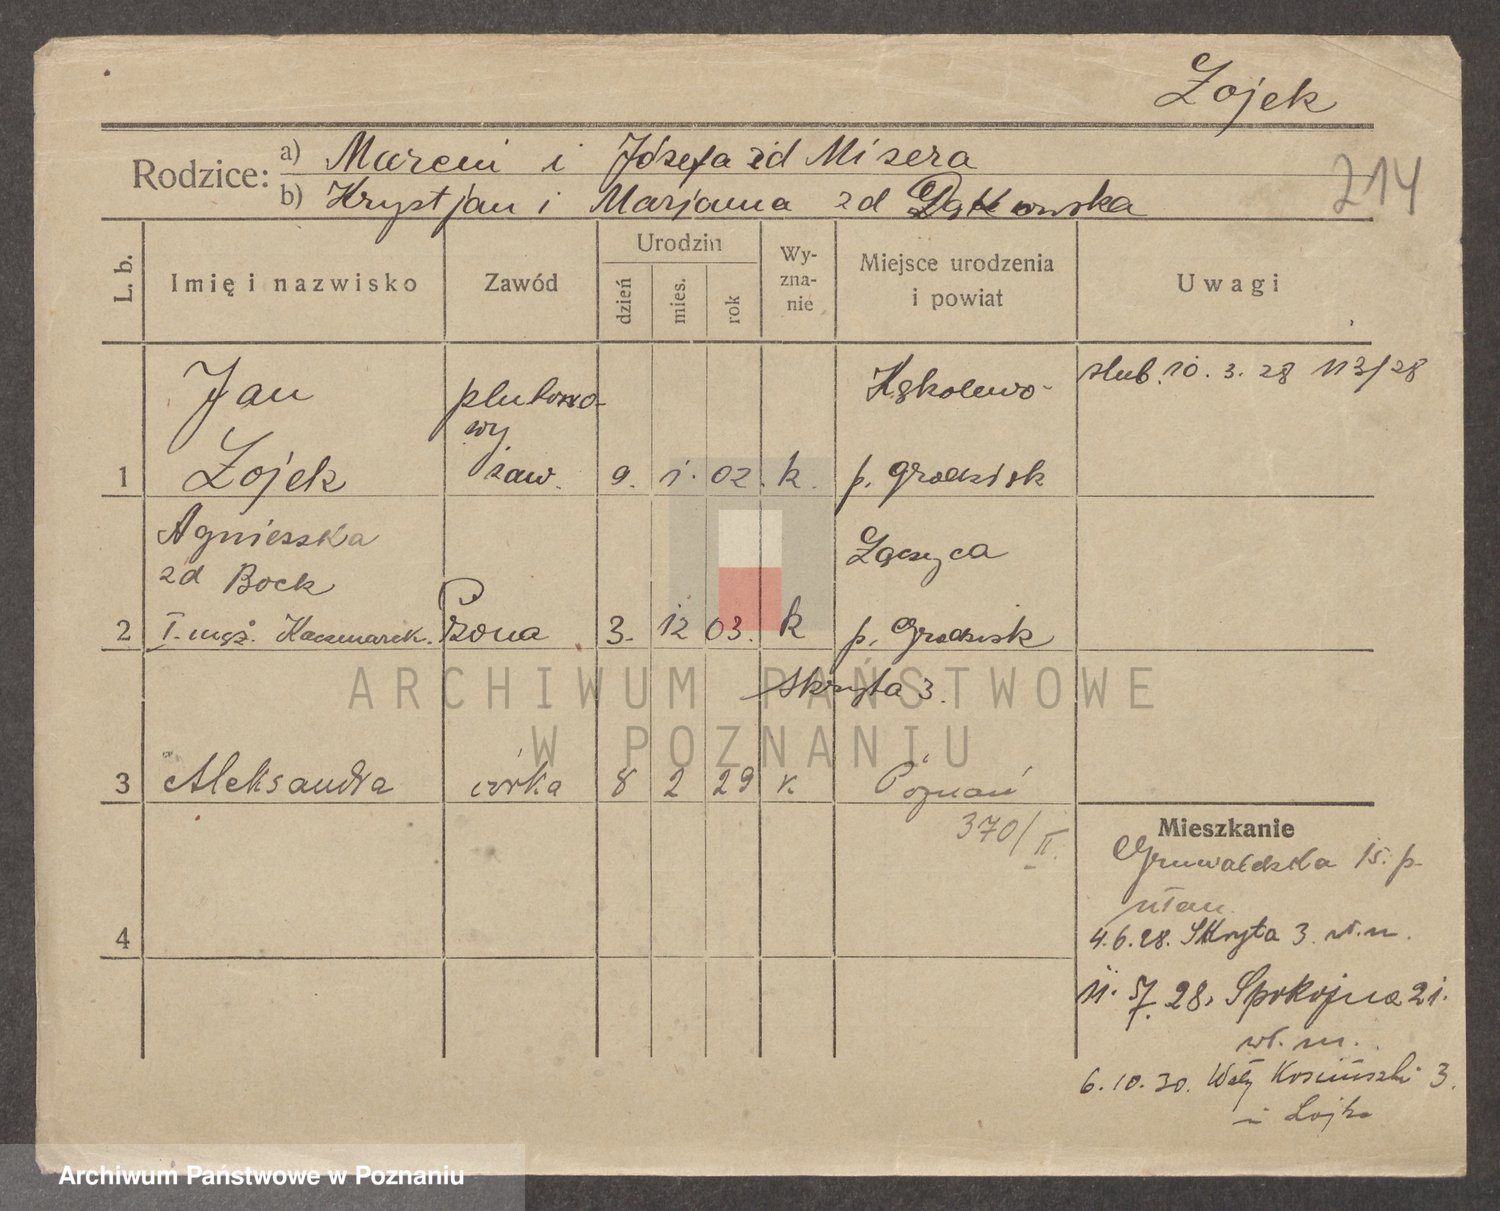 Łojek
Rodzice: a) Marcin i Józefa zd Misera
b) Krystjan i Marjanna zd
214
L. b. Imię i nazwisko Zawód Urodzin dzień mies. rok Wy-zna-nie Miejsce urodzenia i powiat Uwagi
Jan plutono- Kąkolewo ślub. 10. 3. 28 113/28
wy
1 Łojek zaw. 9. 1. 02. k. p. Grodzisk
Agnieszka
zd Bock Łęczyca
2 I. mąż. Kaczmarek. żona 3. 12 03. k p. Grodzisk
Skryta 3.
ARCHIWUM PAŃSTWOWE
W POZNANIU
3 Aleksandra córka 8 2 29 k. Poznań
370/II.
Mieszkanie
Grunwaldzka 15. p.
ułan.
4
4.6.28. Skryta 3. wł. m.
11. 7. 28. Spokojna 21.
wł. m.
6.10.30. Wały 3.
Archiwum Państwowe w Poznaniu